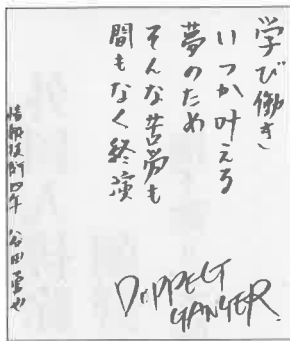 学び働き
いつか叶える
夢のため
そんな苦労も
間もなく終演
情報技術四年 谷田
DOPPELT
GANGER.